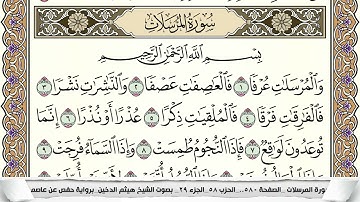 سُورَةُ المُرْسَلَاتِ
بِسْمِ اللَّهِ الرَّحْمَٰنِ الرَّحِيمِ
وَالْمُرْسَلَٰتِ عُرْفًا ١ فَالْعَٰصِفَٰتِ عَصْفًا ٢ وَالنَّٰشِرَٰتِ نَشْرًا ٣
فَالْفَٰرِقَٰتِ فَرْقًا ٤ فَالْمُلْقِيَٰتِ ذِكْرًا ٥ عُذْرًا أَوْ نُذْرًا ٦ إِنَّمَا
تُوعَدُونَ لَوَٰقِعٌ ٧ فَإِذَا النُّجُومُ طُمِسَتْ ٨ وَإِذَا السَّمَآءُ فُرِجَتْ ٩
ورة المرسلات _الصفحة ٥٨٠.. الحزب ٥٨_الجزء ٢٩_ بصوت الشيخ هيثم الدخين_برواية حفص عن عاصم